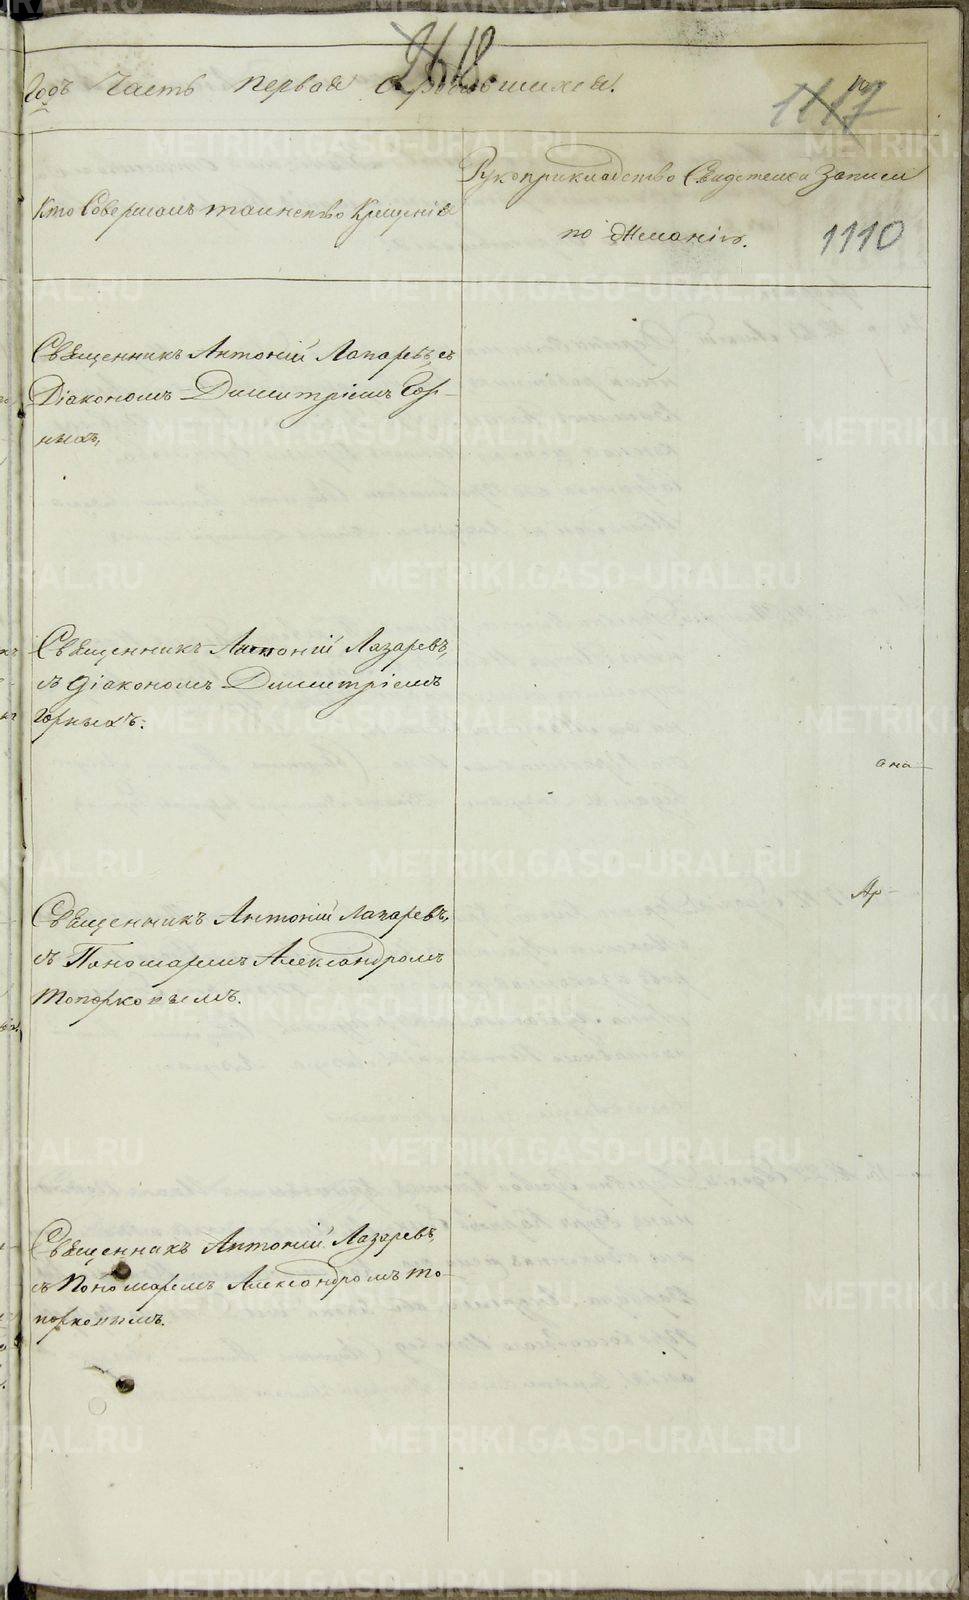 2618
Годъ Часть первая о родившихся.
1117
Рукоприкладство Свидетелей Записи
Кто Совершалъ таинство Крещенія
по Желанію.
1110
Священникъ Антоній Лазаревъ, съ
Діакономъ Димитріемъ Гор-
ныхъ,
Священникъ Антоній Лазаревъ,
съ Діакономъ Димитріемъ
Горныхъ.
она
Ар-
Священникъ Антоній Лазаревъ,
съ Пономаремъ Александромъ
Топорковымъ.
Священникъ Антоній Лазаревъ,
съ Пономаремъ Александромъ То-
порковымъ.
METRIKI.GASO-URAL.RU